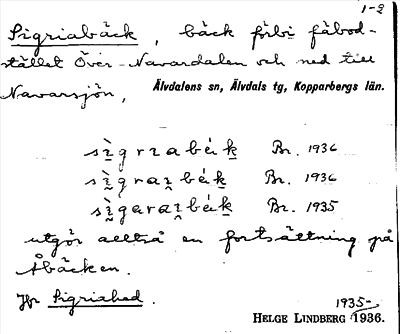 1-2
Sigriabäck, bäck förbi fäbod-
stället Över-Navardalen och ned till
Navarsjön,
Älvdalens sn, Älvdals tg, Kopparbergs län.
Br. 1936
Br. 1936
Br. 1935
utgör alltså en fortsättning på
Åbäcken.
Jfr Sigriahed.
1935-
HELGE LINDBERG 1936.